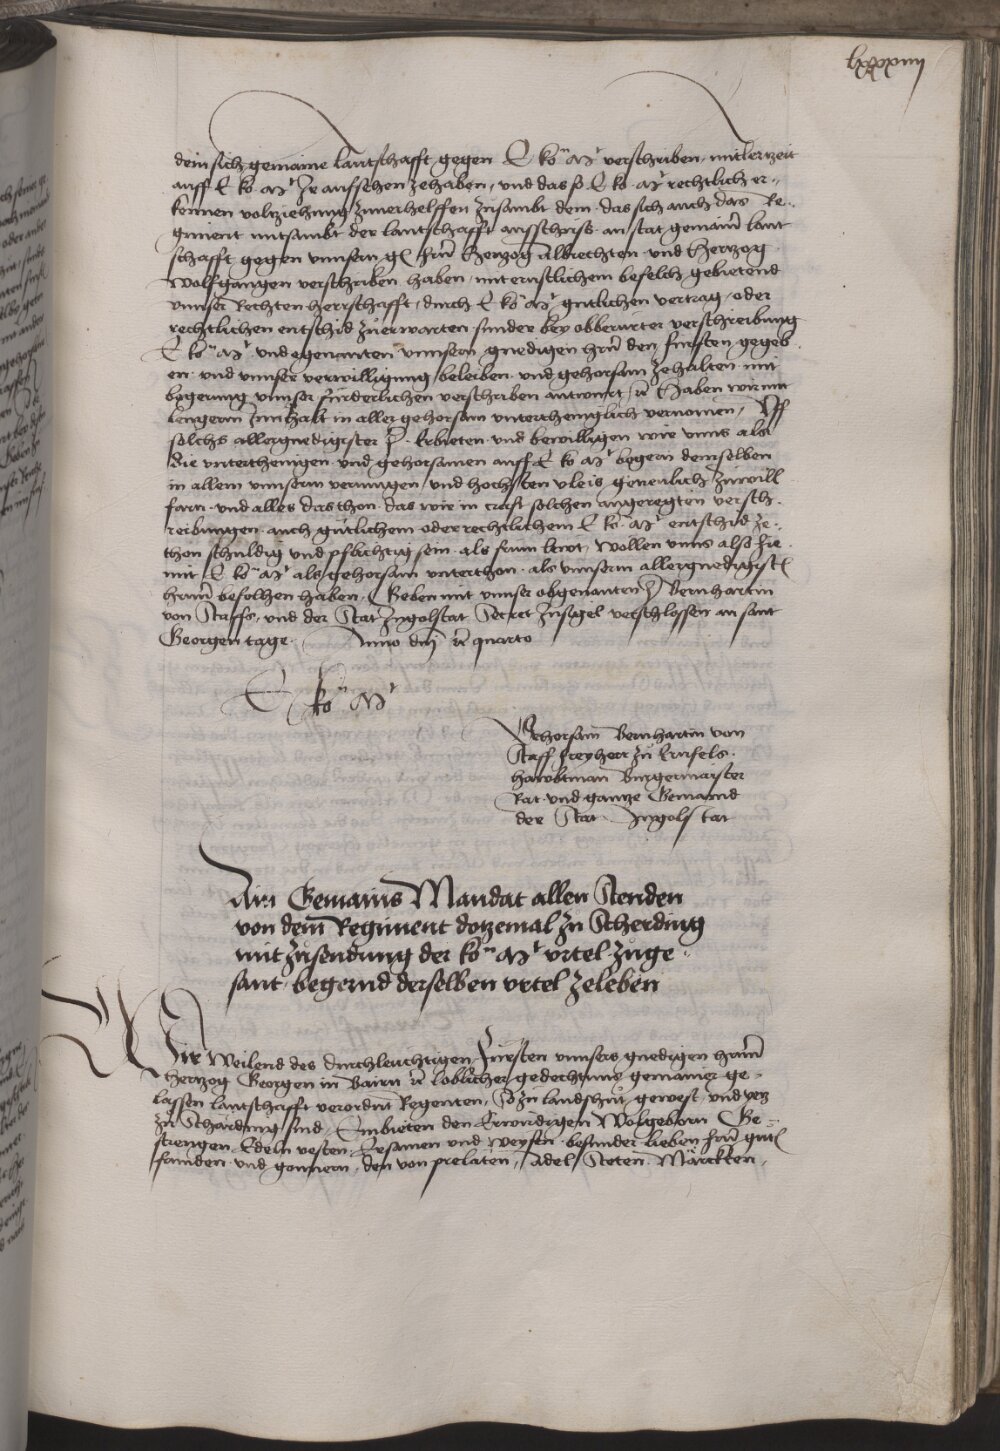 lxxxxiiij
dein sich gemaine lantschafft gegen E ko̅ Mt verschriben, mitlerzeit
auff E ko Mt Ir aufsehen zehaben, und das so E ko Mt rechtlich er-
kennen volziehung zuuerhelffen zusambt dem das sich auch das Re-
giment mitsambt der lantschafft ausschuss an stat gemainer lant
schafft gegen unnsern g. hern Hertzog Albrechten und Hertzog
Wolfgangen verschriben haben, mit ernstlichem befelch gebietend
unnser Rechten herrschafft, durch E ko Mt gutlichen vertrag, oder
rechtlichen entschid zuerwarten sunder bey obberurter verschreibung
E ko Mt und egenanten unnsern gnedigen hern den fursten gegeb
en und unnser verwilligung beleiben und gehorsam zehalten mit
begerung unnser furderlichen verschriben antwurt, rc Haben wir mit
lengerm Innhalt in aller gehorsam untertheniglich vernomen, Uff
solchs allergnedigister H. Erbieten und bewilligen wir unns als
Die unterthenigen und gehorsamen auff E ko Mt begern demselben
in allem unnserm vermugen und hochsten vleis genntzlich zuwill
farn und alles das thon das wir in crafft solchen angeregten versch
reibungen auch gutlichem oder rechtlichem E ko Mt entschid ze-
thon schuldig und pflichtig sein als frum lewt, Wollen unns also hie
mit E ko Mt als gehorsam unterthon als unnserm allergnedigist
hern befolhen haben, Geben mit unnser obgenanten H Bernhartin
von Stauffs, und der Stat Ingolstat Secret Insigel verschlossen an sant
Georgen tage Anno dm rc quarto
E ko Mt
Gehorsam Bernhartin von
Stauff freyherr zu Ernfels
hawbtman Burgermaister
Rat und gantze Gemaind
der Stat Ingolstat
Ain Gemains Mandat allen Stenden
von dem Regiment dotzemal zu Scherding
mit zusendung der ko Mt urtel zuge
sant begernd derselben urtel zeleben
Wir Weilend des durchleuchtigen Fursten unnsers gnedigen hern
Hertzog Georgen in Bairn rc loblicher gedechtnus gemainer ge-
lassen lantschafft verordnt Regenten, So zu landshut gewest, und ytz
zu Scharding sind, Embieten den Erwirdigen Wolgeborn Ge-
strengen Edeln vesten Ersamen und Weysen besunder lieben hern gut
frainden und gonnern, den von prelaten, Adel Steten Märckten,